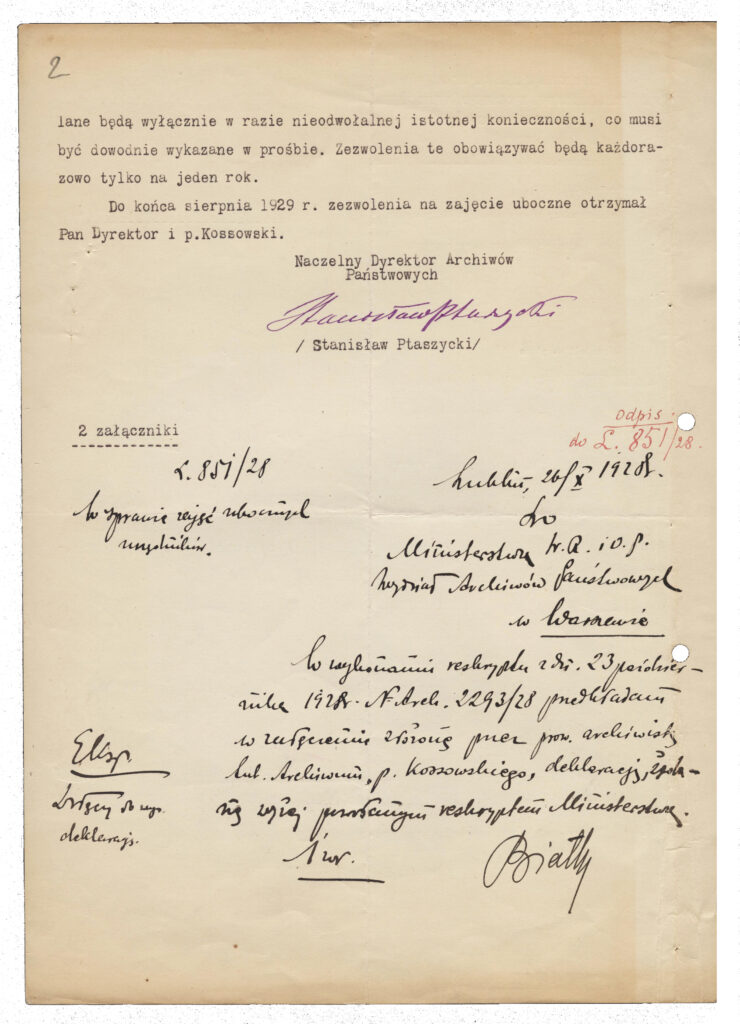 2
lane będą wyłącznie w razie nieodwołalnej istotnej konieczności, co musi
być dowodnie wykazane w prośbie. Zezwolenia te obowiązywać będą każdora-
zowo tylko na jeden rok.
Do końca sierpnia 1929 r. zezwolenia na zajęcie uboczne otrzymał
Pan Dyrektor i p.Kossowski.
Naczelny Dyrektor Archiwów
Państwowych
Stanisław Ptaszycki
/ Stanisław Ptaszycki/
2 załączniki
odpis
do L. 851/28.
L. 851/28
Lublin, 26/X 1928r.
W sprawie zajęć ubocznych
urzędników.
Do
Ministerstwa W.R. i O.P.
Wydział Archiwów Państwowych
w Warszawie
W wykonaniu reskryptu z dn. 23 paździer-
nika 1928r. N. Arch. 2293/28 przedkładam
w załączeniu złożoną przez prow. archiwistę
Lub. Archiwum, p. Kossowskiego, deklarację, żąda-
ną wyżej powołanym reskryptem Ministerstwa.
Eksp.
deklaracji.
1 zał.
Białk